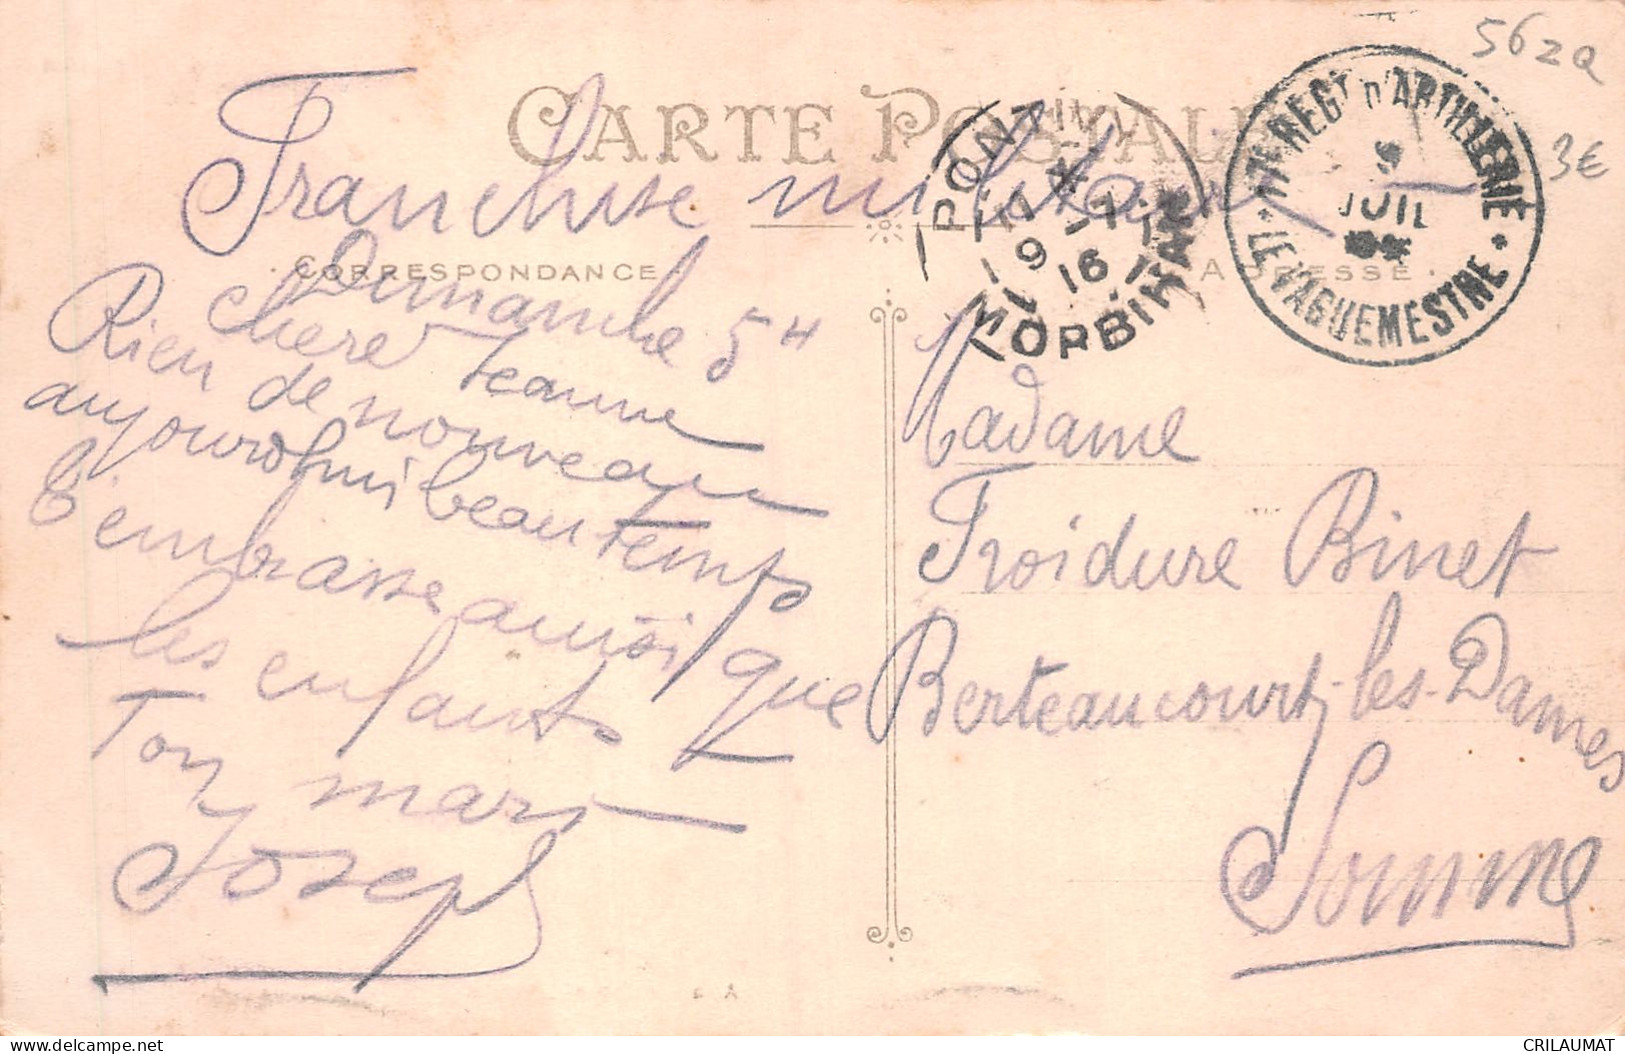 562Q
3€
CARTE POSTALE
Franchise militaire
CORRESPONDANCE
ADRESSE
PONTIVY
9 -7 16
MORBIHAN
REGT D'ARTILLERIE
9
JUIL
* LE VAGUEMESTRE *
Dimanche 5 H
Chère Jeanne
Rien de nouveau
aujourd'hui beau temps
t'embrasse ainsi que
les enfants
Ton mari
Joseph
Madame
Froidure Binet
Berteaucourt-les-Dames
Somme
delcampe.net
CRILAUMAT